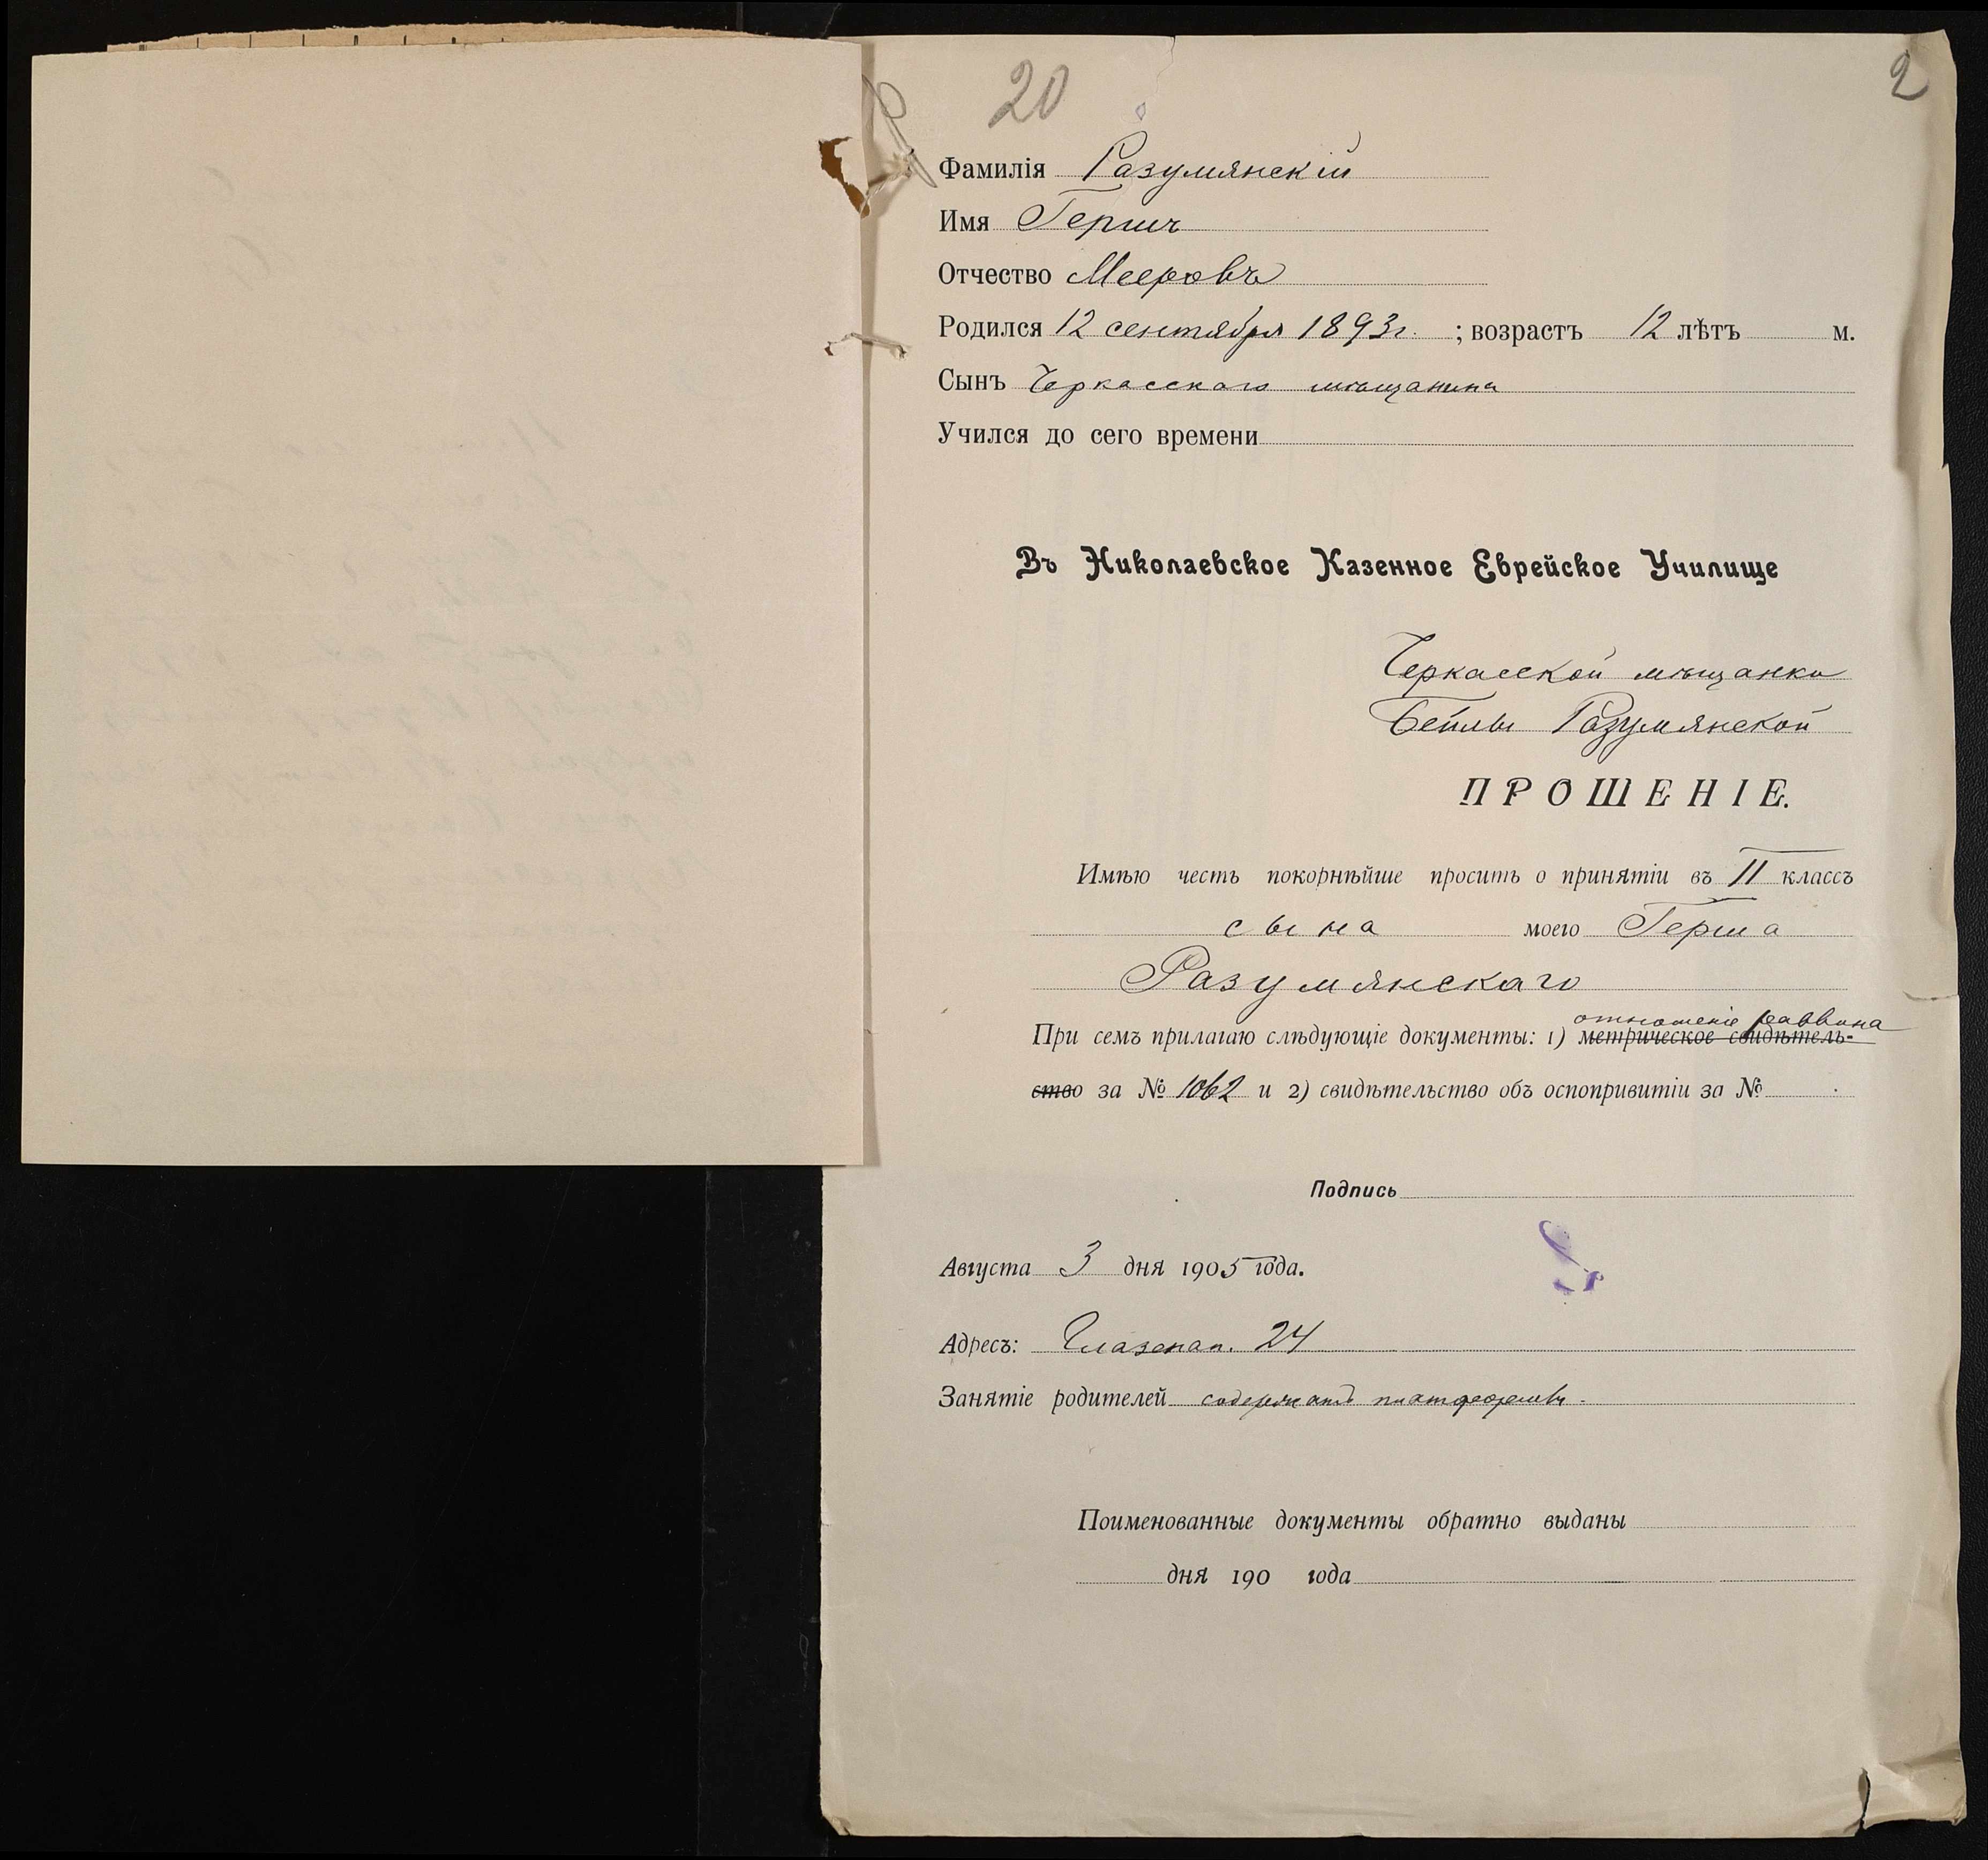 20
2
Фамилія Разумянскій
Имя Гершъ
Отчество Мееровъ
Родился 12 сентября 1893 г. ; возрастъ 12 лѣтъ м.
Сынъ Черкасскаго мѣщанина
Учился до сего времени
Въ Николаевское Казенное Еврейское Училище
Черкасской мѣщанки
Бейлы Разумянской
ПРОШЕНІЕ.
Имѣю честь покорнѣйше просить о принятіи въ II классъ
сына моего Герша
Разумянскаго
отношеніе раввина
При семъ прилагаю слѣдующіе документы: 1) метрическое свидѣтель-
ство за № 1062 и 2) свидѣтельство объ оспопривитіи за №
Подпись
Августа 3 дня 1905 года.
Адресъ: Глазенап. 24
Занятіе родителей содержатъ
Поименованные документы обратно выданы
дня 190 года